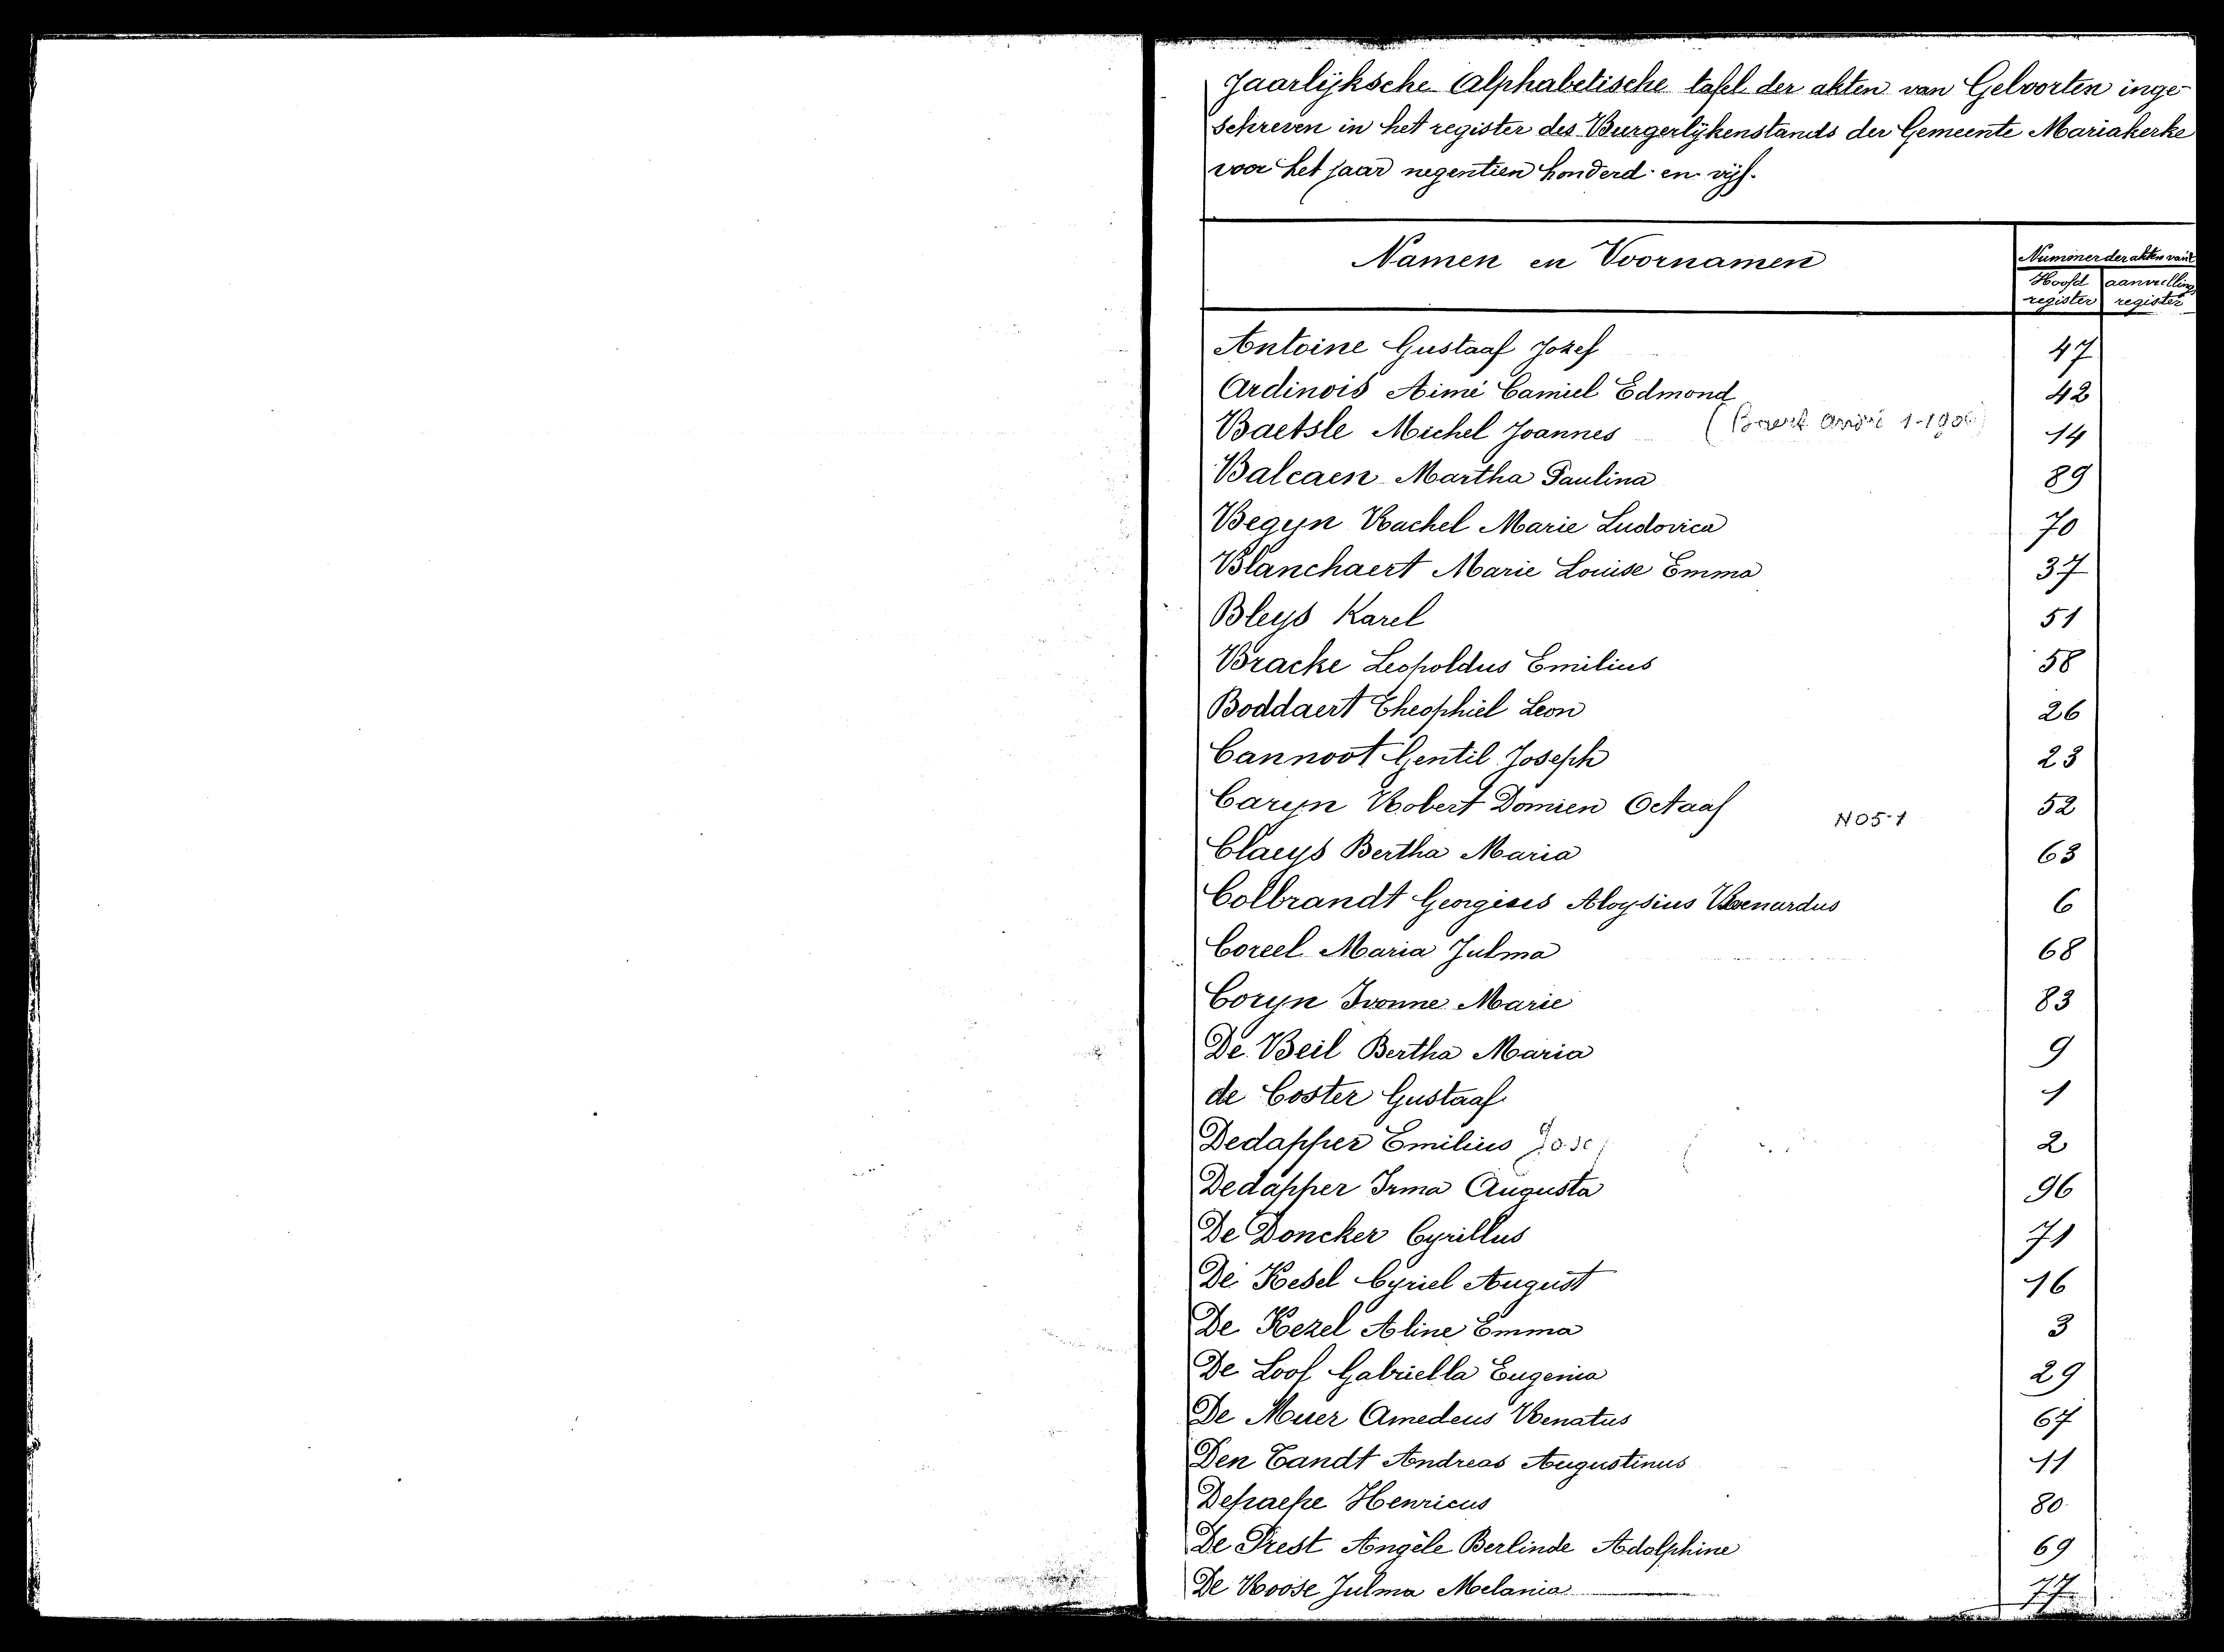 Jaarlijksche Alphabetische tafel der akten van Geboorten inge-
schreven in het register des Burgerlijkenstands der Gemeente Mariakerke
voor het jaar negentien honderd en vijf.
Namen en Voornamen
Nummer der akten van't
Hoofd register
aanvulling register
Antoine Gustaaf Jozef 47
Ardinois Aimé Camiel Edmond 42
(Baert André 1-1906)
Baetsle Michel Joannes 14
Balcaen Martha Paulina 89
Begyn Rachel Marie Ludovica 70
Blanchaert Marie Louise Emma 37
Bleys Karel 51
Bracke Leopoldus Emilius 58
Boddaert Theophiel Leon 26
Cannoot Gentil Joseph 23
Caryn Robert Domien Octaaf 52
NO5-1
Claeys Bertha Maria 63
Colbrandt Georgius Aloysius Bernardus 6
Coreel Maria Julma 68
Coryn Ivonne Marie 83
De Beil Bertha Maria 9
de Coster Gustaaf 1
Dedapper Emilius 2
Dedapper Irma Augusta 96
De Doncker Cyrillus 71
De Kesel Cyriel August 16
De Kezel Aline Emma 3
De Loof Gabriella Eugenia 29
De Muer Amedeus Renatus 67
Den Tandt Andreas Augustinus 11
Depaepe Henricus 80
De Prest Angèle Berlinde Adolphine 69
De Roose Julma Melania 77